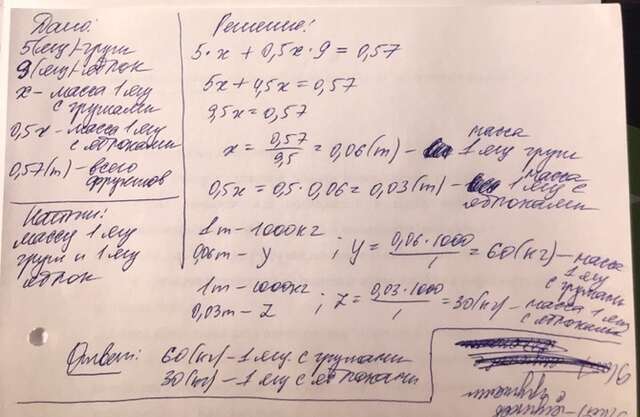 Дано:
5(ящ)-груш
9(ящ)-яблок
x - масса 1 ящ
с грушами
0,5x - масса 1 ящ
с яблоками
0,57(т) - всего
фруктов
Найти:
массу 1 ящ
груш и 1 ящ
яблок
Решение:
5·x + 0,5x·9 = 0,57
5x + 4,5x = 0,57
9,5x = 0,57
x = 0,57/9,5 = 0,06(т) - масса 1 ящ груш
0,5x = 0,5·0,06 = 0,03(т) - масса 1 ящ с яблоками
1т - 1000кг
0,06т - y ; y = 0,06·1000/1 = 60(кг) - масса 1 ящ с грушами
1т - 1000кг
0,03т - z ; z = 0,03·1000/1 = 30(кг) - масса 1 ящ с яблоками
Ответ: 60(кг) - 1 ящ. с грушами
30(кг) - 1 ящ с яблоками